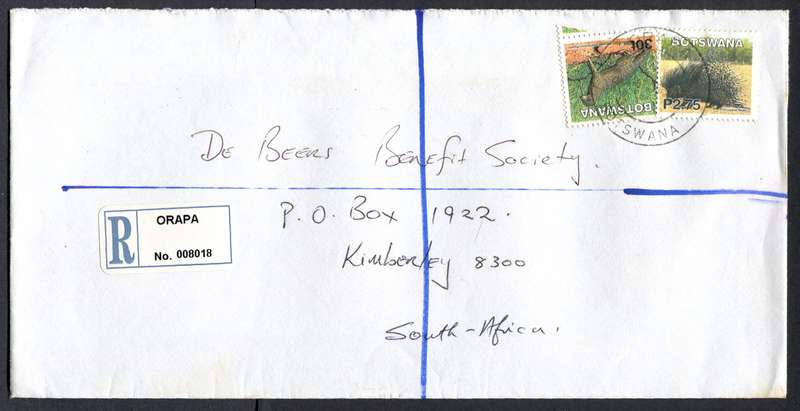 30t
BOTSWANA
BOTSWANA
P2.75
TSWANA
De Beers Benefit Society.
P.O. Box 1922.
Kimberley 8300
South-Africa.
R
ORAPA
No. 008018